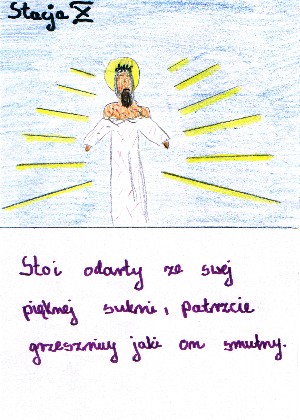 Stacja X
Stoi odarty ze swej
pięknej sukni, patrzcie
grzesznicy jaki on smutny.